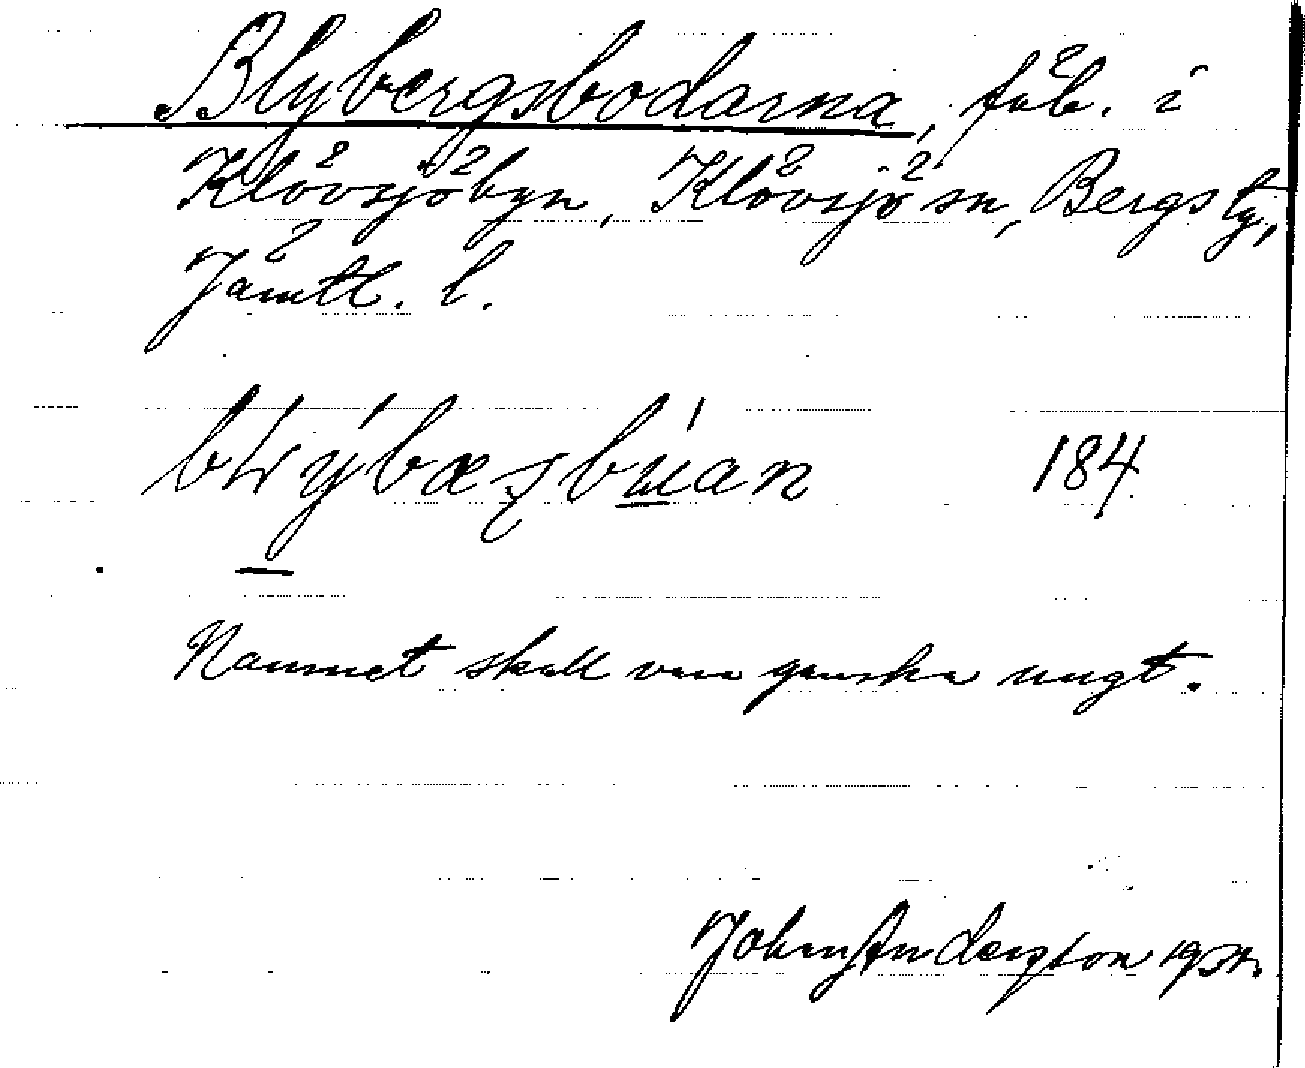 Blybergsbodarna, fäb. i
Klövsjöbyn, Klövsjö sn, Bergs tg,
Jämtl. l.
184
Namnet skall vara ganska ungt.
John Anderzon